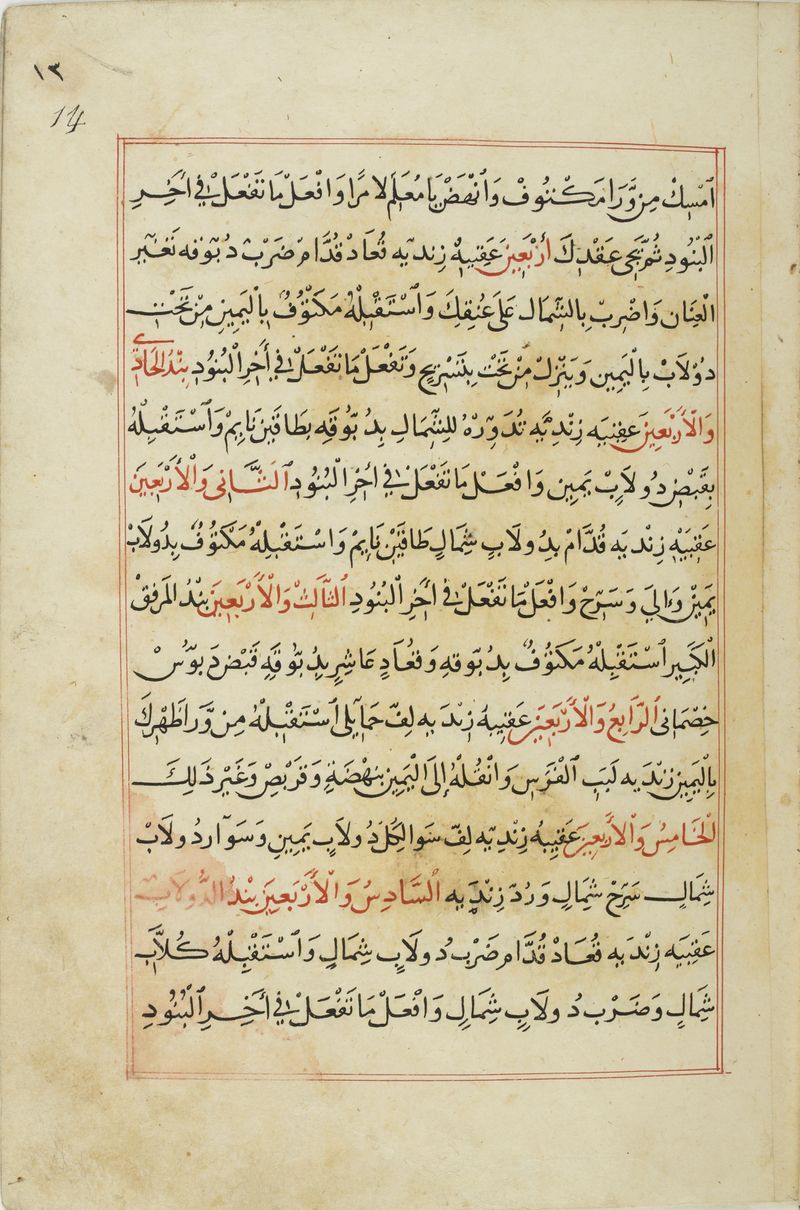 ١٣
14
اَمْسِكْ مِنْ وَّرَا مَكْتُوفْ وَاَنْهَضْ يَا مُعَلِّم لامرًا وَافْعَلْ مَا تَفْعَلْ فِي اَخِرِ
الْبُنُودِ ثُمَّ يَجى عَقْدِكَ أَرْبَعِينَ عَقِبيهْ زِنديه تُعَادْ قُدَّامْ ضَرَبْ دبُوقه تَغيّر
الْعِنَان وَاضْرِبْ بِالشِّمَال عَلَى عُنُقِكَ وَاَسْتَقْبِلْهُ مَكْتُوفْ بِالْيَمِينِ مِنْ تَحْتِ
دُوْلَابْ بِالْيَمِينِ وَيَنْزِلْ مِنْ تَحْت بِتَسْرِيحٍ وَتَفْعَلْ مَا تَفْعَلْ فِي أَخِرِ الْبُنُودِ بِنْدُ الحَادِي
وَالْأَرْبَعِينَ عَقِبيَه زِنْدِيَّه تُدَوِّرُهُ للِشِّمَالِ بِدبُوقَه بِطَاقَيْنِ نَايِمْ وَاَسْتَقْبِلْهُ
بِقَبْضِ دُولَابْ يَمِينِ وَافْعَلْ مَا تَفْعَلْ فِي اَخِرِ الْبُنُودِ اَلثَّانِى وَالْأَرْبَعِينَ
عَقِبيَهْ زِنْديَه قُدَّامْ بِدُولَابِ شِمَالٍ طَاقَيْنْ نَايِمْ وَاسْتَقْبِلْهُ مَكْتُوفْ بِدُولَابْ
يَمِينْ وَءالِىَ وَسَرِّحْ وَافْعَلْ مَا تَفْعَلْ فِي اَخِرِ الْبُنُودِ اَلثَّالِثْ وَالْأَرْبَعِينَ بِنْدُ الْمَرفِقْ
الْكَبِيرِ اَسْتَقْبِلْهُ مَكْتُوفْ بِدبُوقه وَتُعَادِ عَاشِرٍ بِدبُوقَه قَبْضْ دَبُوسْ
خِصْمَانى اَلرَّابِعُ وَالْأَرْبَعِينَ عَقِبيهُ زنديه لِفّ حَمَايلى اَسْتَقْبِلْهُ مِنْ وَّرَا ظَهْرِكَ
بِالْيَمِينِ زنديه لَبَبِ اَلْفَرَسِ وَانْقُلْهُ إِلَى الْيَمِينِ بِنَهْضَةٍ وَقَرْبِصْ وَغَيْرِ ذَلِكَ
الْخَامِسُ وَالْأَرْبَعِينَ عَقِبِيهُ زِنْدِيّه لِفّ سَوَالِكُلْ دُولَابِ يَمِينِ وَسَوَآر دُولَابْ
شِمَالِ سَرِّحْ شِمَالٍ وَرُدّ زِنْدِيَه اَلسَّادِسُ وَالْأَرْبَعِينَ بِنْدُ الدُّولَابْ
عَقِبيَه زِنْديه تُعَادْ قُدَّامْ ضَرْب دُولَابِ شِمَالٍ وَاَسْتَقْبِلْهُ كُلَّابِ
شِمَالٍ وَضَرْب دُولَابِ شِمَالِ وَافْعَلْ مَا تَفْعَلْ فِي أَخِرِ اَلْبُنُودِ